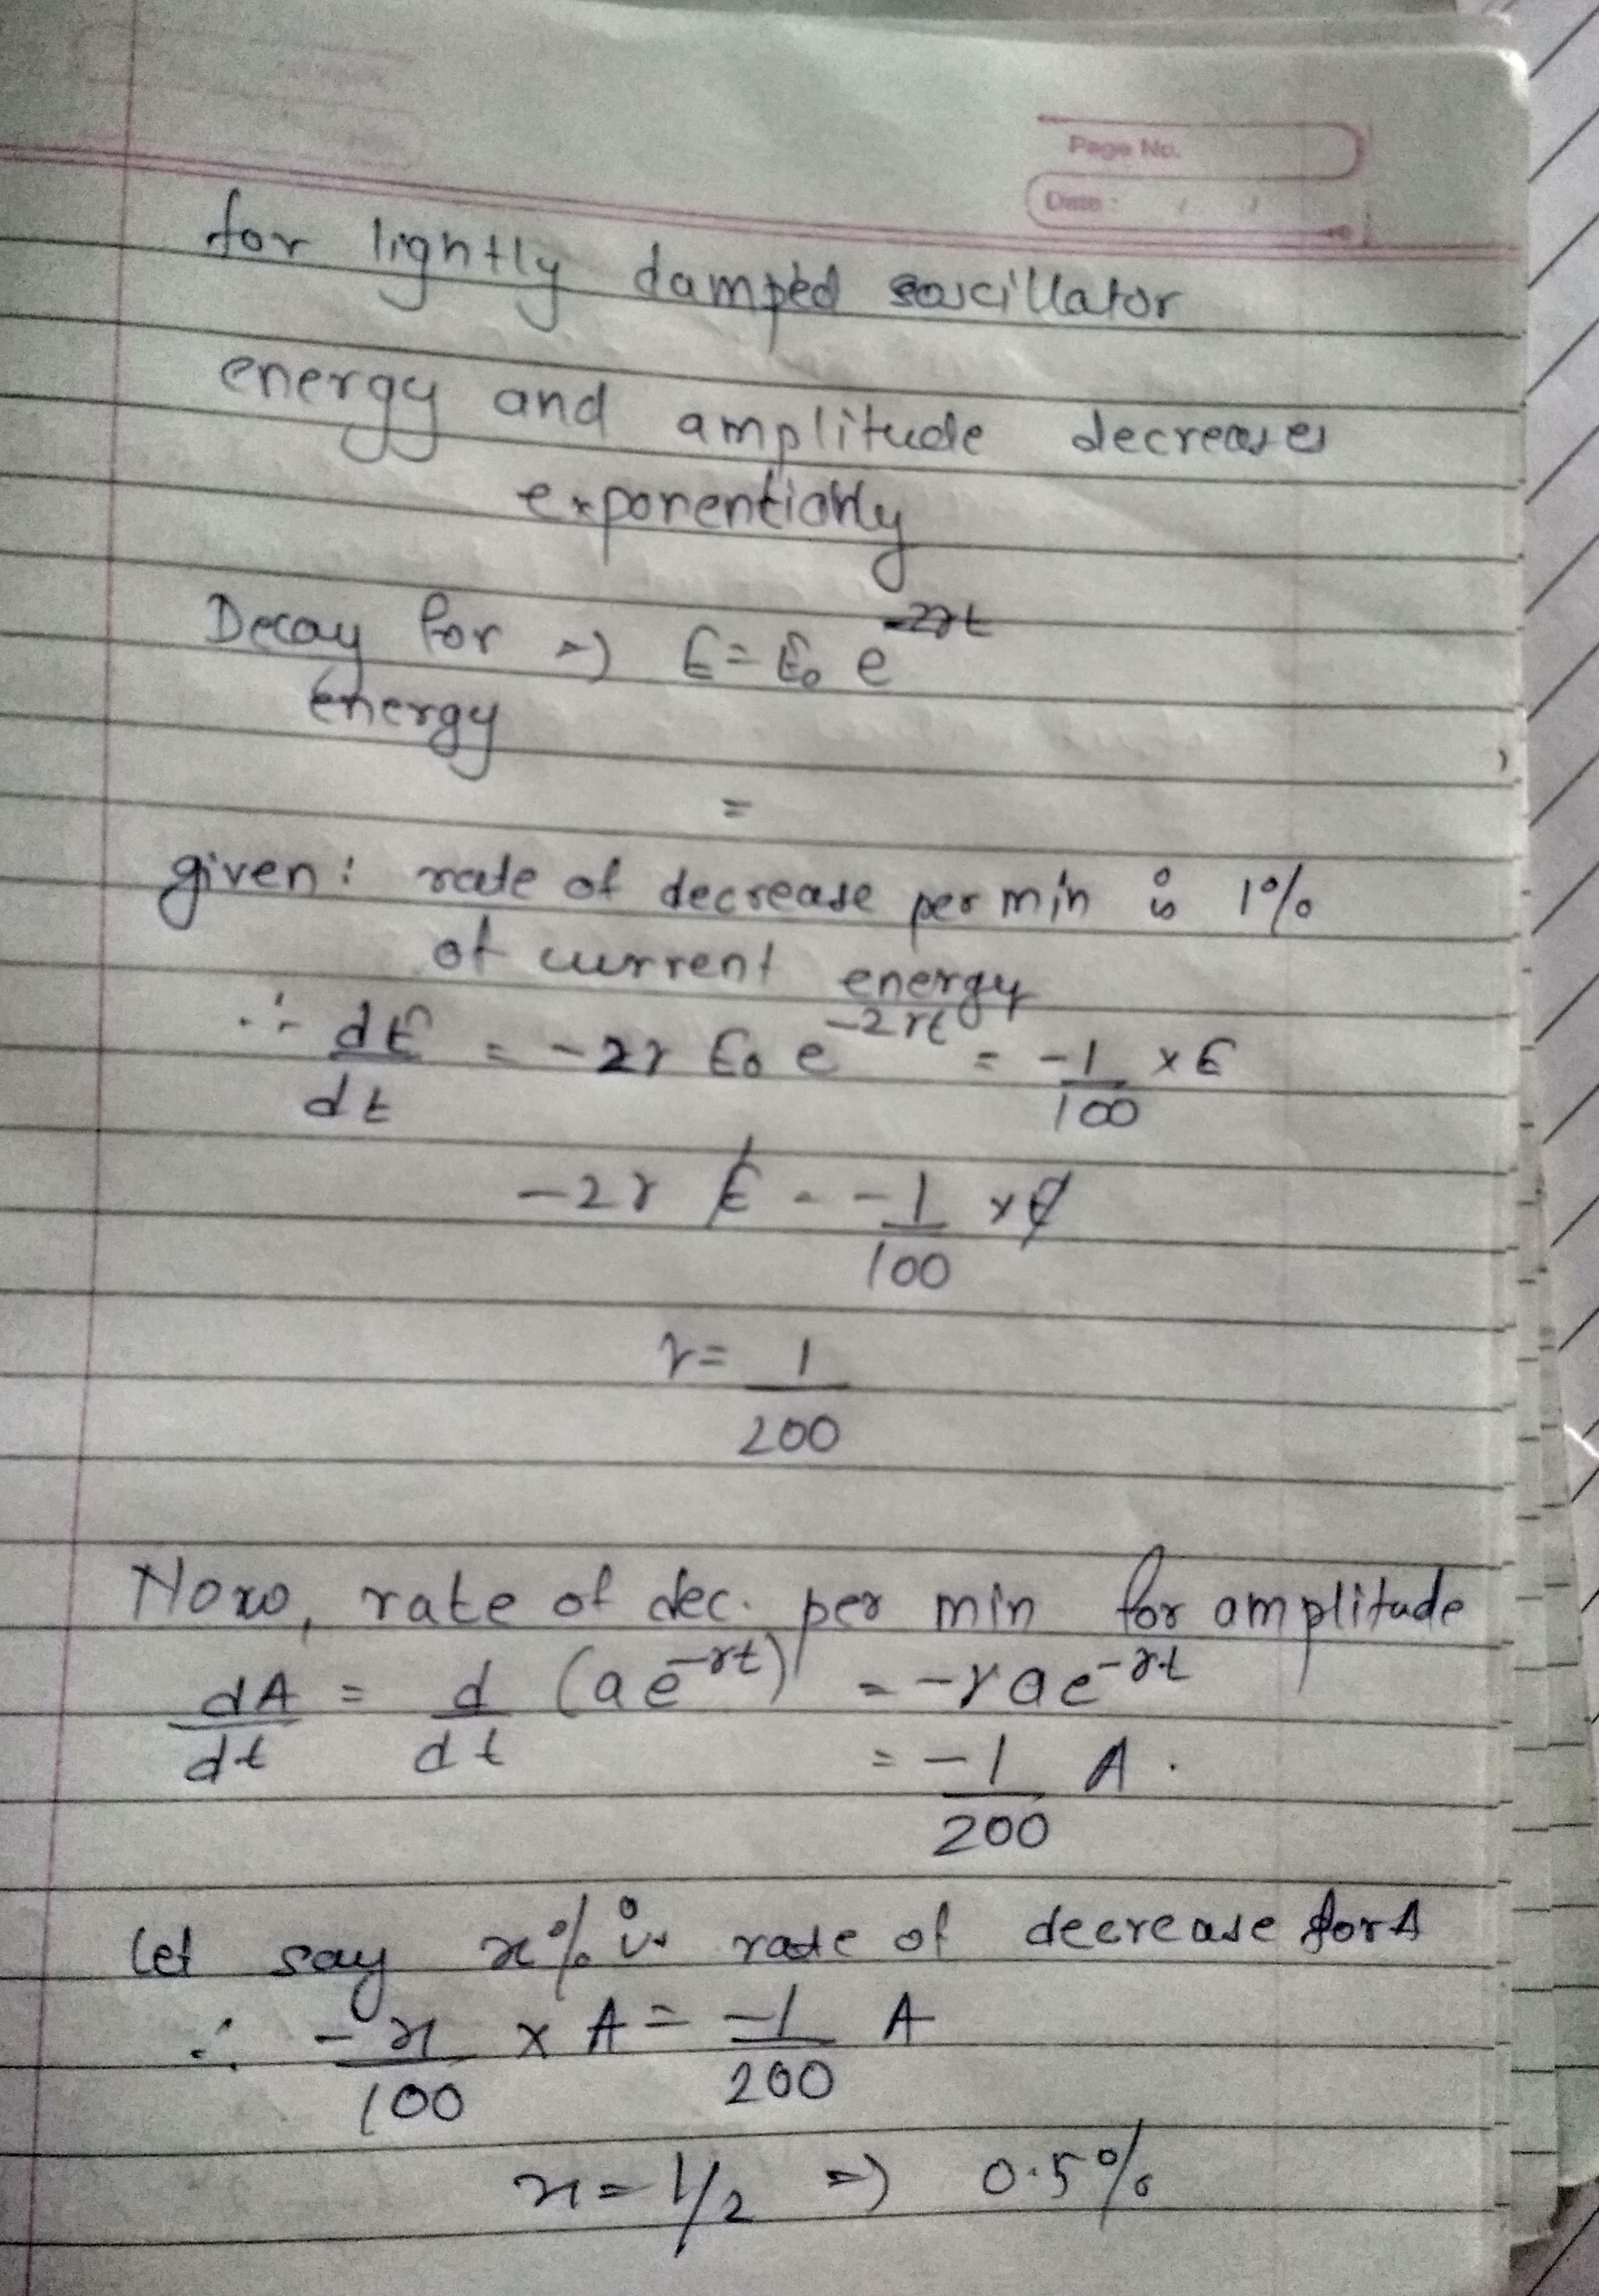 Page No.
Date : / /
for lightly damped oscillator
energy and amplitude decreases
exponentially
Decay for => E = E₀ e^-2rt
energy
=
given : rate of decrease per min is 1%
of current energy
∴ dE/dt = -2r E₀ e^-2rt = -1/100 × E
-2r E = -1/100 × E
r = 1/200
Now, rate of dec. per min for amplitude
dA/dt = d/dt (a e^-rt) = -r a e^-rt
= -1/200 A .
let say x% is rate of decrease for A
∴ -x/100 × A = -1/200 A
x = 1/2 => 0.5%